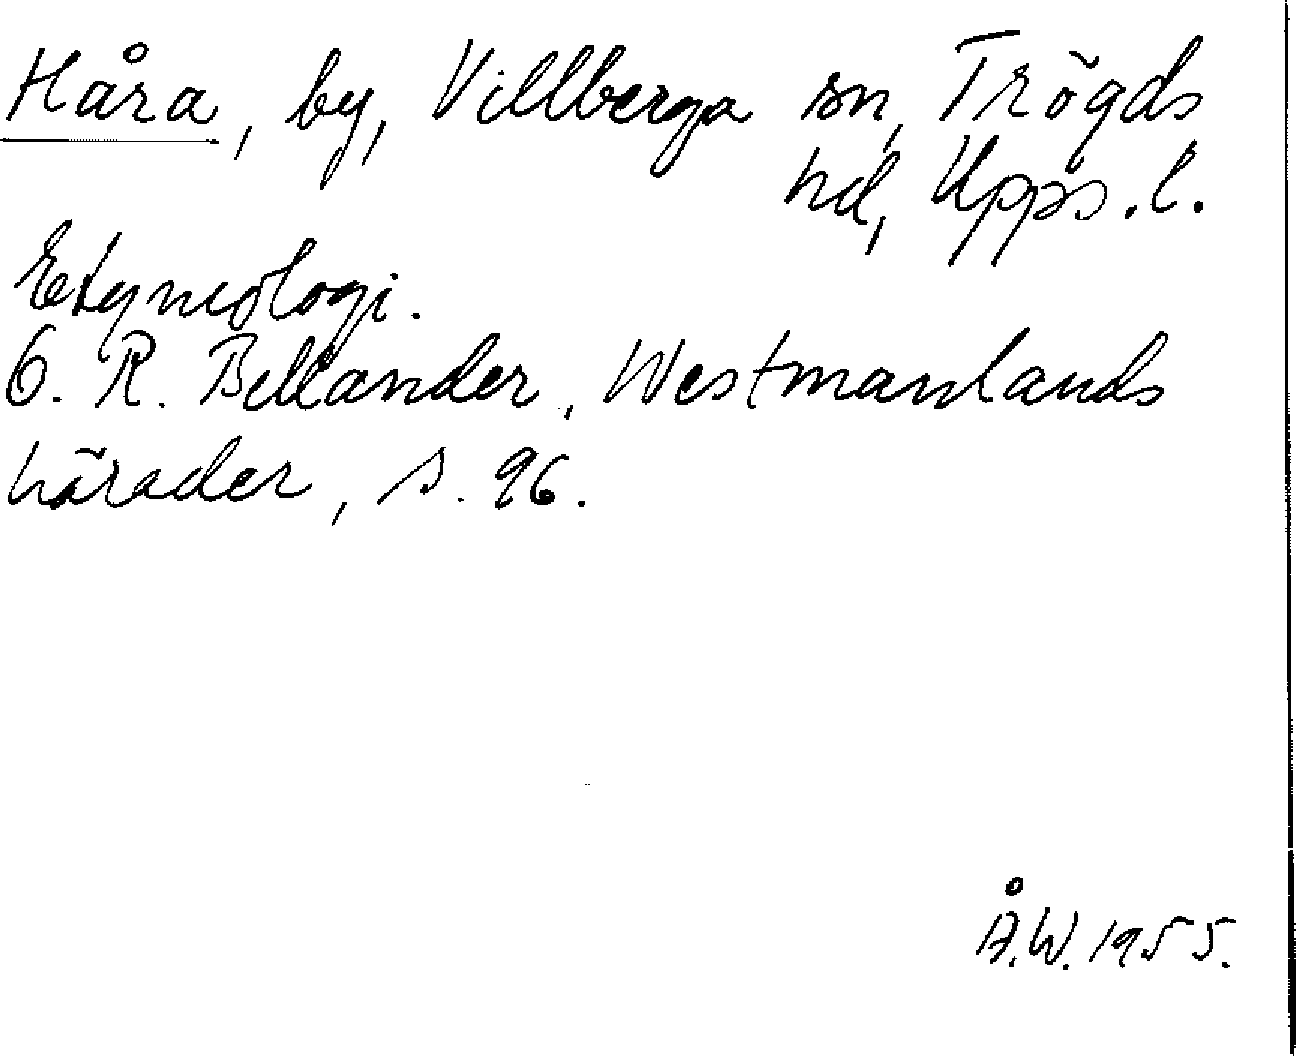 Håra, by, Villberga sn, Trögds
hd, Upps. l.
Etymologi.
O. R. Bellander, Westmanlands
härader, s. 96.
Å.W. 1955.